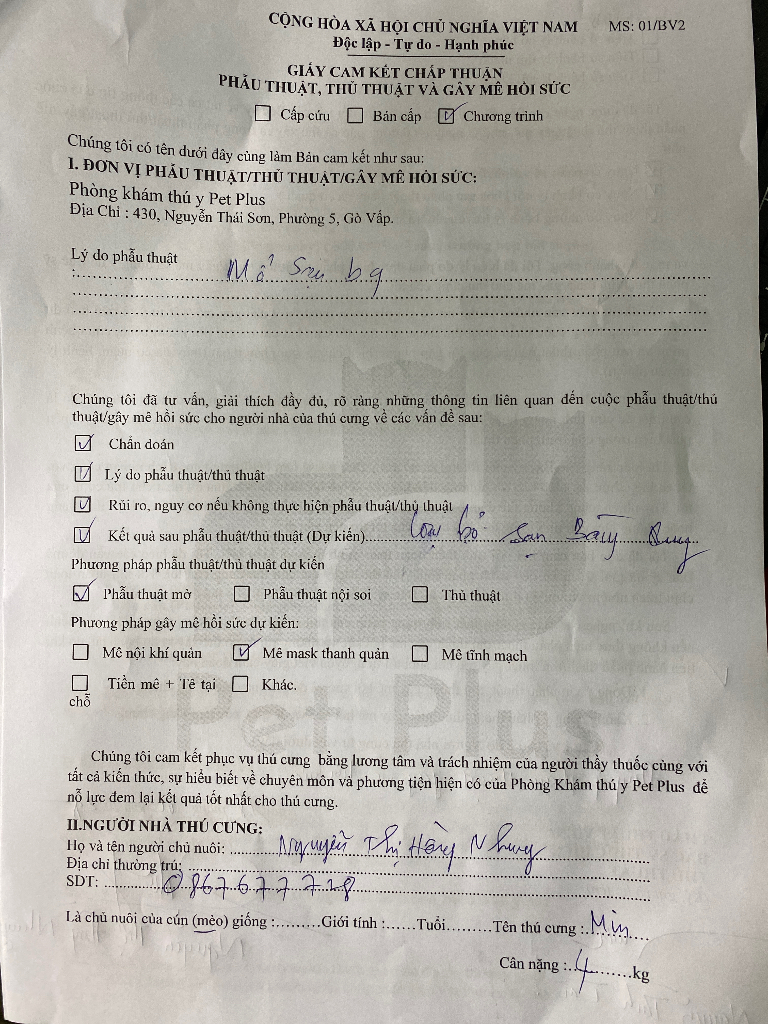 CỘNG HÒA XÃ HỘI CHỦ NGHĨA VIỆT NAM MS: 01/BV2
Độc lập - Tự do - Hạnh phúc
GIẤY CAM KẾT CHẤP THUẬN
PHẪU THUẬT, THỦ THUẬT VÀ GÂY MÊ HỒI SỨC
☐ Cấp cứu ☐ Bán cấp ☑ Chương trình
Chúng tôi có tên dưới đây cùng làm Bản cam kết như sau:
I. ĐƠN VỊ PHẪU THUẬT/THỦ THUẬT/GÂY MÊ HỒI SỨC:
Phòng khám thú y Pet Plus
Địa Chỉ : 430, Nguyễn Thái Sơn, Phường 5, Gò Vấp.
Lý do phẫu thuật
:.......... Mổ sạn bq
Chúng tôi đã tư vấn, giải thích đầy đủ, rõ ràng những thông tin liên quan đến cuộc phẫu thuật/thủ
thuật/gây mê hồi sức cho người nhà của thú cưng về các vấn đề sau:
☑ Chẩn đoán
☑ Lý do phẫu thuật/thủ thuật
☑ Rủi ro, nguy cơ nếu không thực hiện phẫu thuật/thủ thuật
☑ Kết quả sau phẫu thuật/thủ thuật (Dự kiến)..... loại bỏ sạn Bàng Quang
Phương pháp phẫu thuật/thủ thuật dự kiến
☑ Phẫu thuật mở ☐ Phẫu thuật nội soi ☐ Thủ thuật
Phương pháp gây mê hồi sức dự kiến:
☐ Mê nội khí quản ☑ Mê mask thanh quản ☐ Mê tĩnh mạch
☐ Tiền mê + Tê tại ☐ Khác.
chỗ
Pet Plus
Chúng tôi cam kết phục vụ thú cưng bằng lương tâm và trách nhiệm của người thầy thuốc cùng với
tất cả kiến thức, sự hiểu biết về chuyên môn và phương tiện hiện có của Phòng Khám thú y Pet Plus để
nỗ lực đem lại kết quả tốt nhất cho thú cưng.
II.NGƯỜI NHÀ THÚ CƯNG:
Họ và tên người chủ nuôi: .......... Nguyễn Thị Hồng Nhung
Địa chỉ thường trú:
SDT: .......... 0867677728
Là chủ nuôi của cún (mèo) giống :.........Giới tính :......Tuổi.........Tên thú cưng :..Min....
Cân nặng :..4.......kg